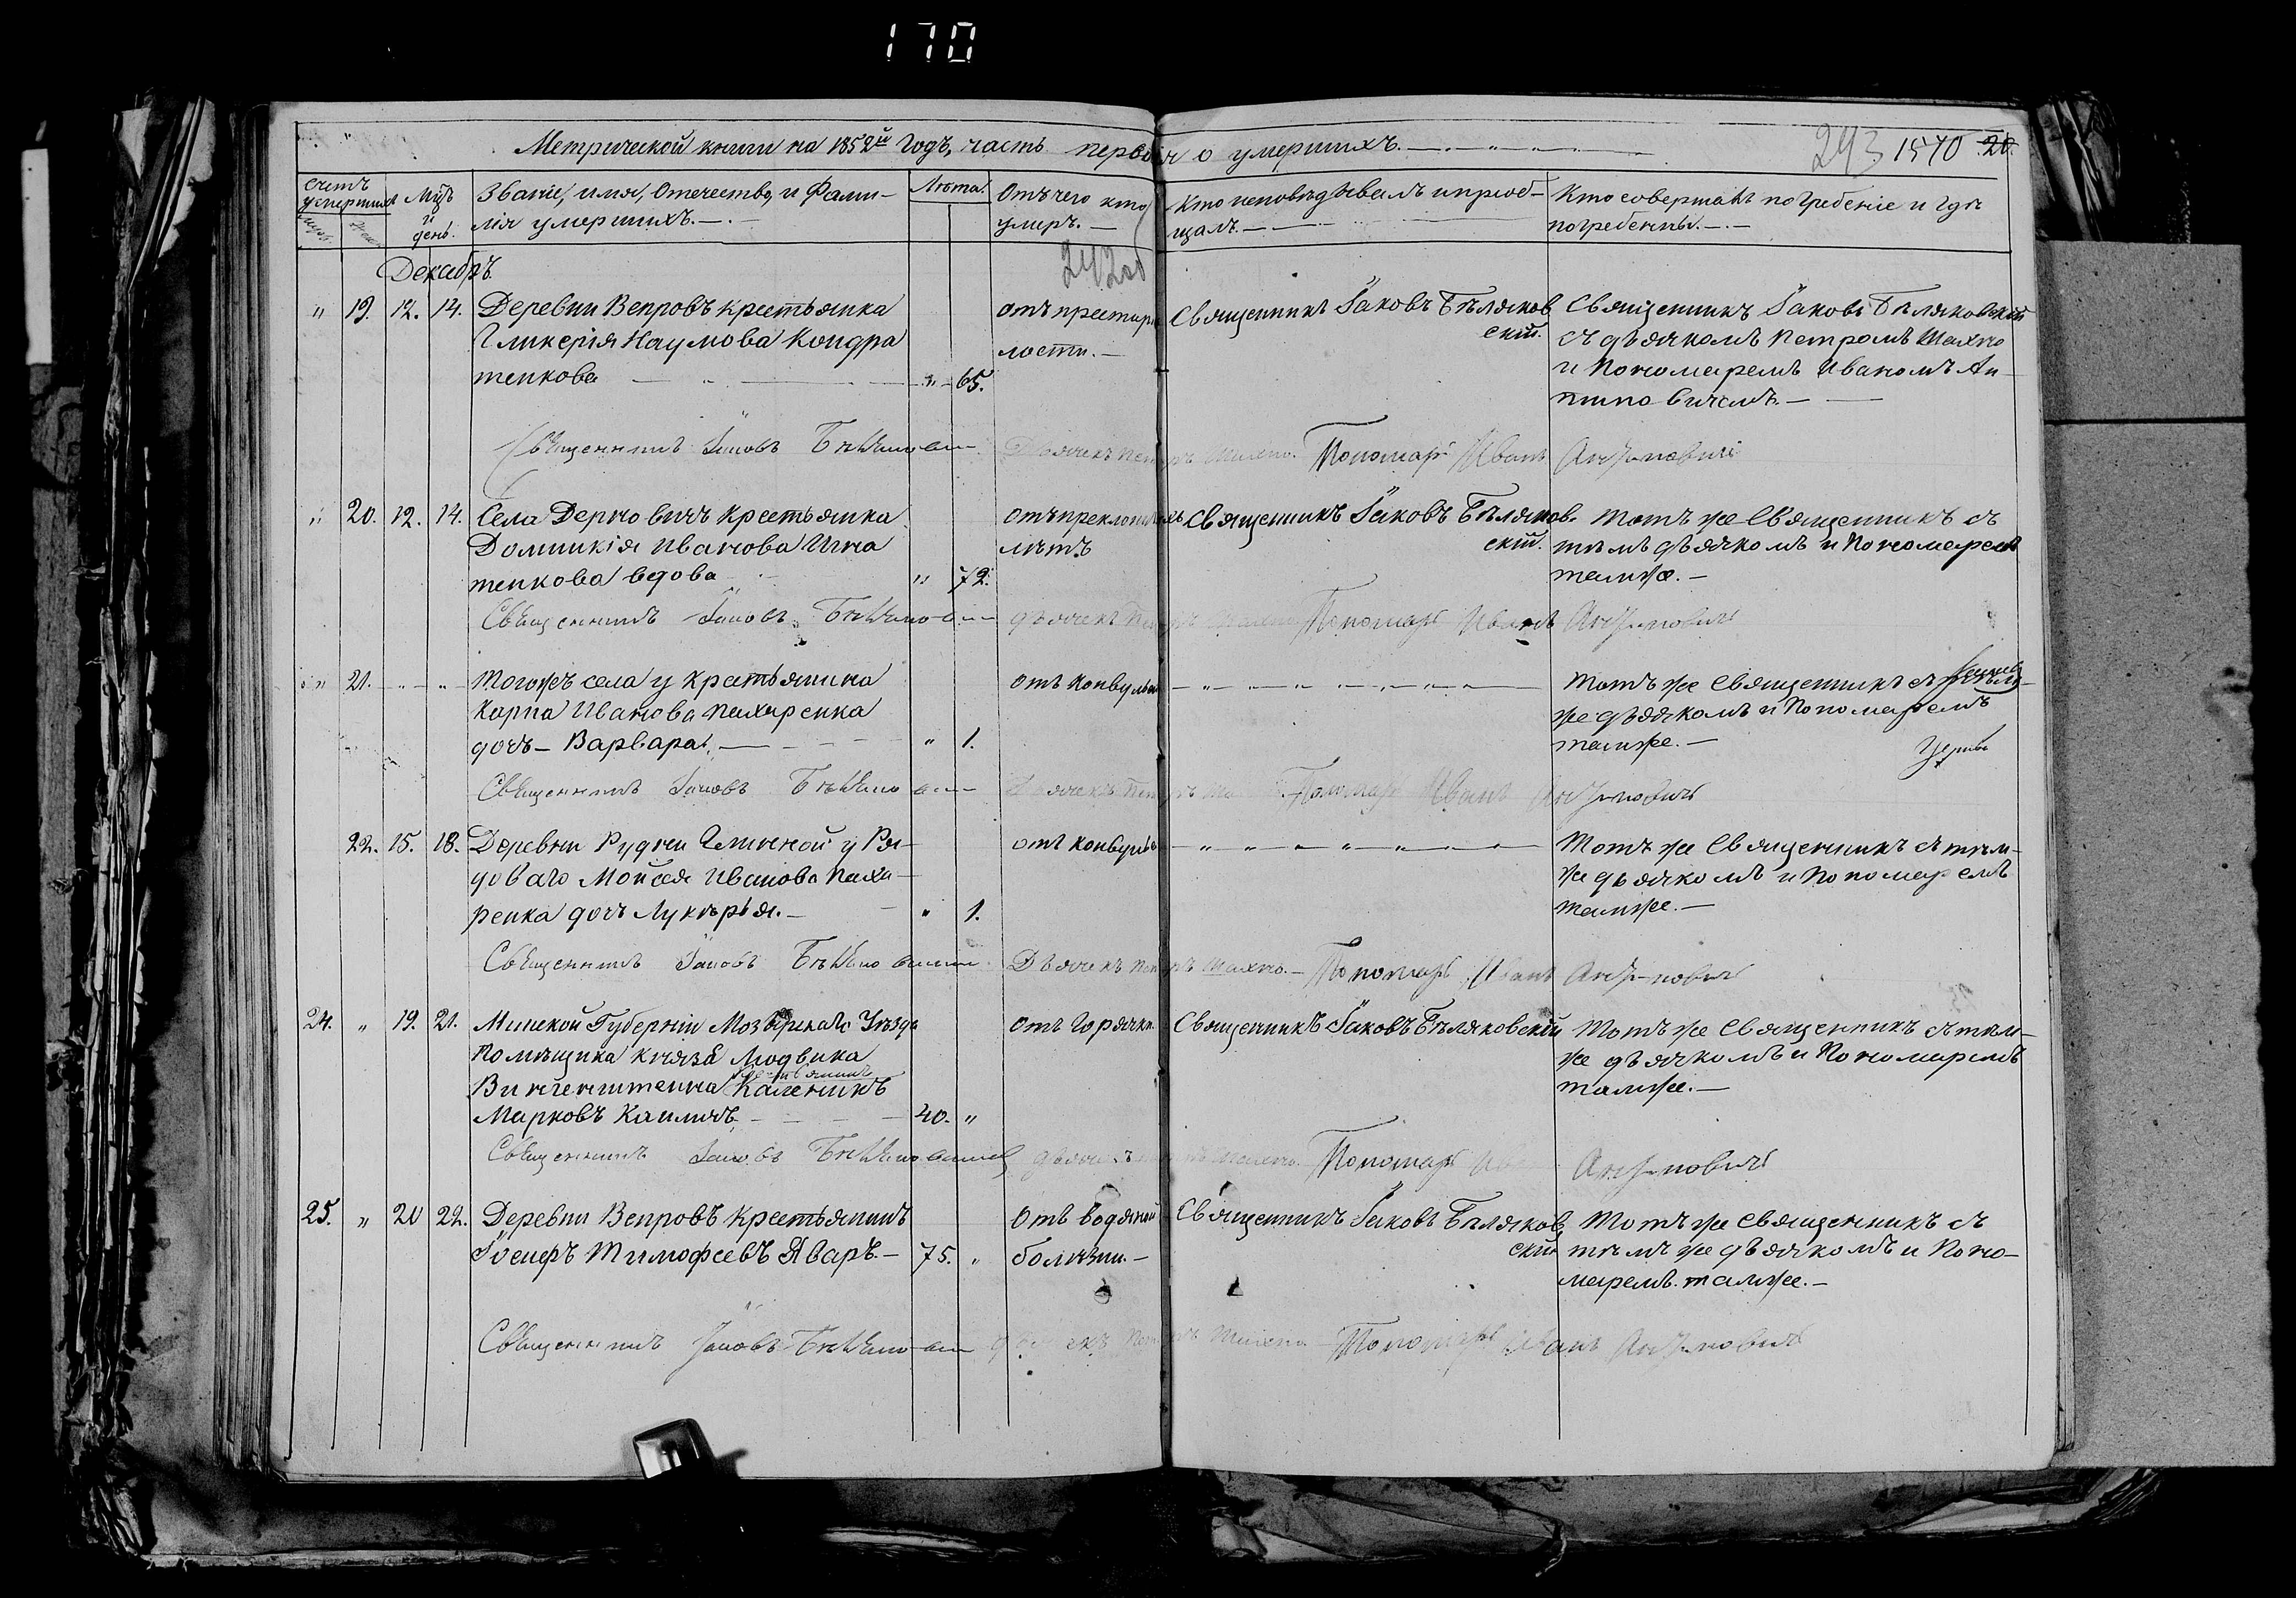 170
Метрической книги на 1852й Годъ, часть первая о умершихъ.
293 1570 20.
Счетъ умершихъ
Мцъ и день.
Званіе, имя, Отечество, и Фами-
лія умершихъ.
Лѣта.
Отъ чего кто
умеръ.
Кто исповѣдывалъ и приоб-
щалъ.
Кто совершалъ погребеніе и гдѣ
погребенны.
292об
Декабрь
" 19. 12. 14. Деревни Вепровъ крестьянка
Гликерія Наумова Кондра
тенкова " 65.
отъ престаре
лости.
Священникъ Іаковъ Бѣляков
скій.
Священникъ Іаковъ Бѣляковскій
съ дьячкомъ Петромъ Махно
и Пономаремъ Иваномъ Ан
типовичемъ.
Священникъ Іаковъ Бѣляковскій Дьячекъ Петръ Махно. Пономарь Иванъ Антиповичъ
" 20. 12. 14. Села Дерновичъ крестьянка
Домникія Иванова Игна
тенкова вдова " 72.
отъ преклонныхъ
лѣтъ
Священникъ Іаковъ Бѣляков-
скій.
Тотъ же Священникъ съ
тѣмъ дьячкомъ и Пономаремъ
тамже.
Священникъ Іаковъ Бѣляковскій дьячекъ Петръ Махно Пономарь Иванъ Антиповичъ
" 21. " " Тогожъ села у крестьянина
Карпа Иванова Пахаренка
дочь Варвара. " 1.
отъ конвульсіи
Тотъ же Священникъ съ
же дьячкомъ и Пономаремъ
тамже.
Священникъ Іаковъ Бѣляковскій Дьячекъ Петръ Махно Пономарь Иванъ Антиповичъ
22. 15. 18. Деревни Рудни Глинной у Ря-
доваго Мойсея Иванова Паха-
ренка дочь Лукерья. " 1.
отъ конвульсіи
Тотъ же Священникъ съ тѣм-
же дьячкомъ и Пономаремъ
тамже.
Священникъ Іаковъ Бѣляковскій Дьячекъ Петръ Махно. Пономарь Иванъ Антиповичъ
24. " 19. 21. Минской Губерніи Мозырскаго Уѣзда
Помѣщика князя Людвика
крестьянинъ
Вингенштейна Каленикъ
Марковъ 40. "
отъ Горячки.
Священникъ Іаковъ Бѣляковскій
Тотъ же Священникъ съ тѣм-
же дьячкомъ и Пономаремъ
тамже.
Священникъ Іаковъ Бѣляковскій дьячекъ Петръ Махно. Пономарь Иванъ Антиповичъ
25. " 20 22. Деревни Вепровъ крестьянинъ
Іосифъ Тимофеевъ Яваръ. 75. "
Отъ водяной
болѣзни.
Священникъ Іаковъ Бѣляков
скій
Тотъ же Священникъ съ
тѣмъ же дьячкомъ и Поно-
маремъ тамже.
Священникъ Іаковъ Бѣляковскій дьячекъ Петръ Махно Пономарь Иванъ Антиповичъ